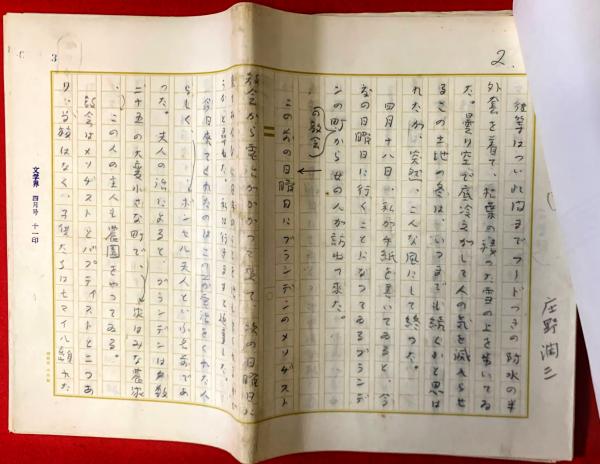 2.
独学はついれ向までフードつきの防水の半
外套を着て、松葉の残った雪の上を歩いてゐ
た。曇り空で底冷えがして人の気を滅入らせ
るこの土地の冬は、いつまでも続くかと思は
れたが、突然、こんな風にして終った。
四月十八日、私が手紙を書いてゐると、今
度の日曜日に行くことになつてゐるブランデ
ンの町から女の人が訪ねて来た。
の教会
二
この前の日曜日にブランデンのメソヂスト
教会から電話がかかつて来て、次の日曜日に
うかと尋ねた。私は行きますと返事した。
今日来てくれたのはこの前電話をくれた人
らしく、ボンセル夫人といふ名前であ
つた。夫人の話によると、ブランデンは戸数
二十五の大変小さな町で、次はみな農家
この人の主人も農園をやつてゐる。
教会はメソヂストとバプティストと二つあ
り、学校はなく、子供たちは七マイル離れた
3
文学界 四月号 十一印
庄野潤三